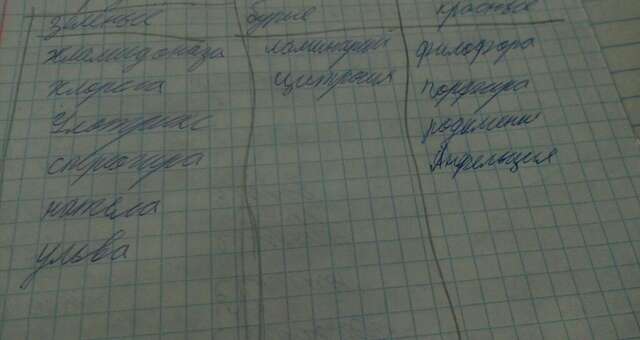 зелёные бурые красные
хламидомонада ламинарий филофора
хлорела цистрозия порфира
Улотрикс родимения
спирогира Анфельция
нителла
ульва